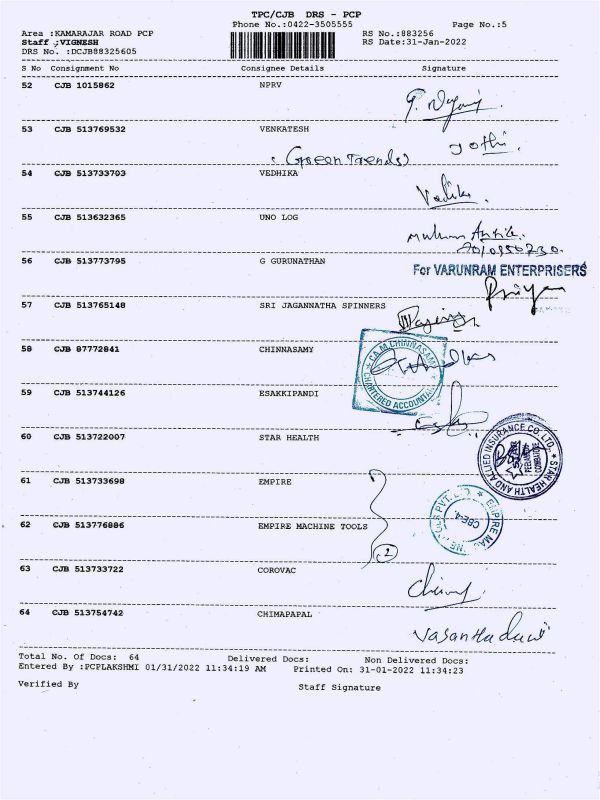 TPC/CJB DRS - PCP
Phone No.:0422-3505555 Page No.:5
Area :KAMARAJAR ROAD PCP RS No.:883256
Staff :VIGNESH RS Date:31-Jan-2022
DRS No. :DCJB88325605
S No Consignment No Consignee Details Signature
52 CJB 1015862 NPRV
53 CJB 513769532 VENKATESH
Jothi.
(Green Trends)
54 CJB 513733703 VEDHIKA
Vedika
55 CJB 513632365 UNO LOG
56 CJB 513773795 G GURUNATHAN
For VARUNRAM ENTERPRISERS
Priya
57 CJB 513765148 SRI JAGANNATHA SPINNERS
58 CJB 87772841 CHINNASAMY
CA.M.CHINNASAMY
CHARTERED ACCOUNTANT
59 CJB 513744126 ESAKKIPANDI
60 CJB 513722007 STAR HEALTH
STAR HEALTH AND ALLIED INSURANCE CO. LTD.,
61 CJB 513733698 EMPIRE
62 CJB 513776886 EMPIRE MACHINE TOOLS
CBE-4.
2
63 CJB 513733722 COROVAC
64 CJB 513754742 CHIMAPAPAL
Total No. Of Docs: 64 Delivered Docs: Non Delivered Docs:
Entered By :PCPLAKSHMI 01/31/2022 11:34:19 AM Printed On: 31-01-2022 11:34:23
Verified By Staff Signature